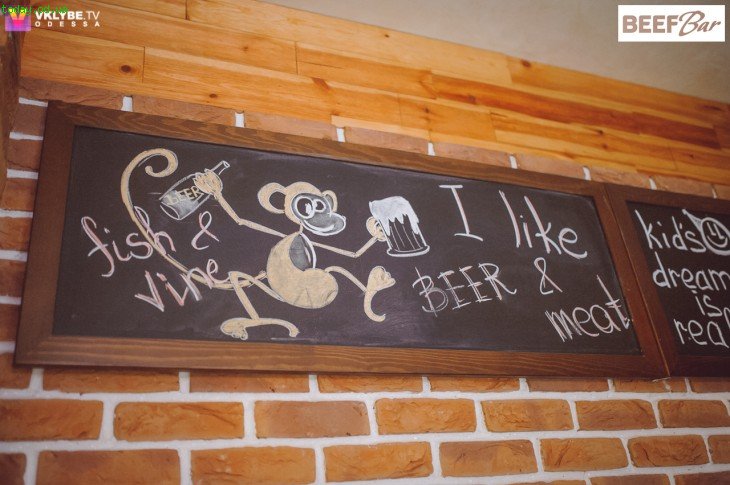 VKLYBE.TV
ODESSA
BEEFBar
BEER
fish &
vine
I like
BEER &
meat
kid's
dream
is
real